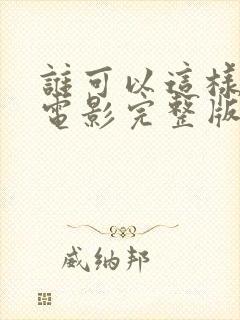 誰可以這樣
電影完整版
威纳邦